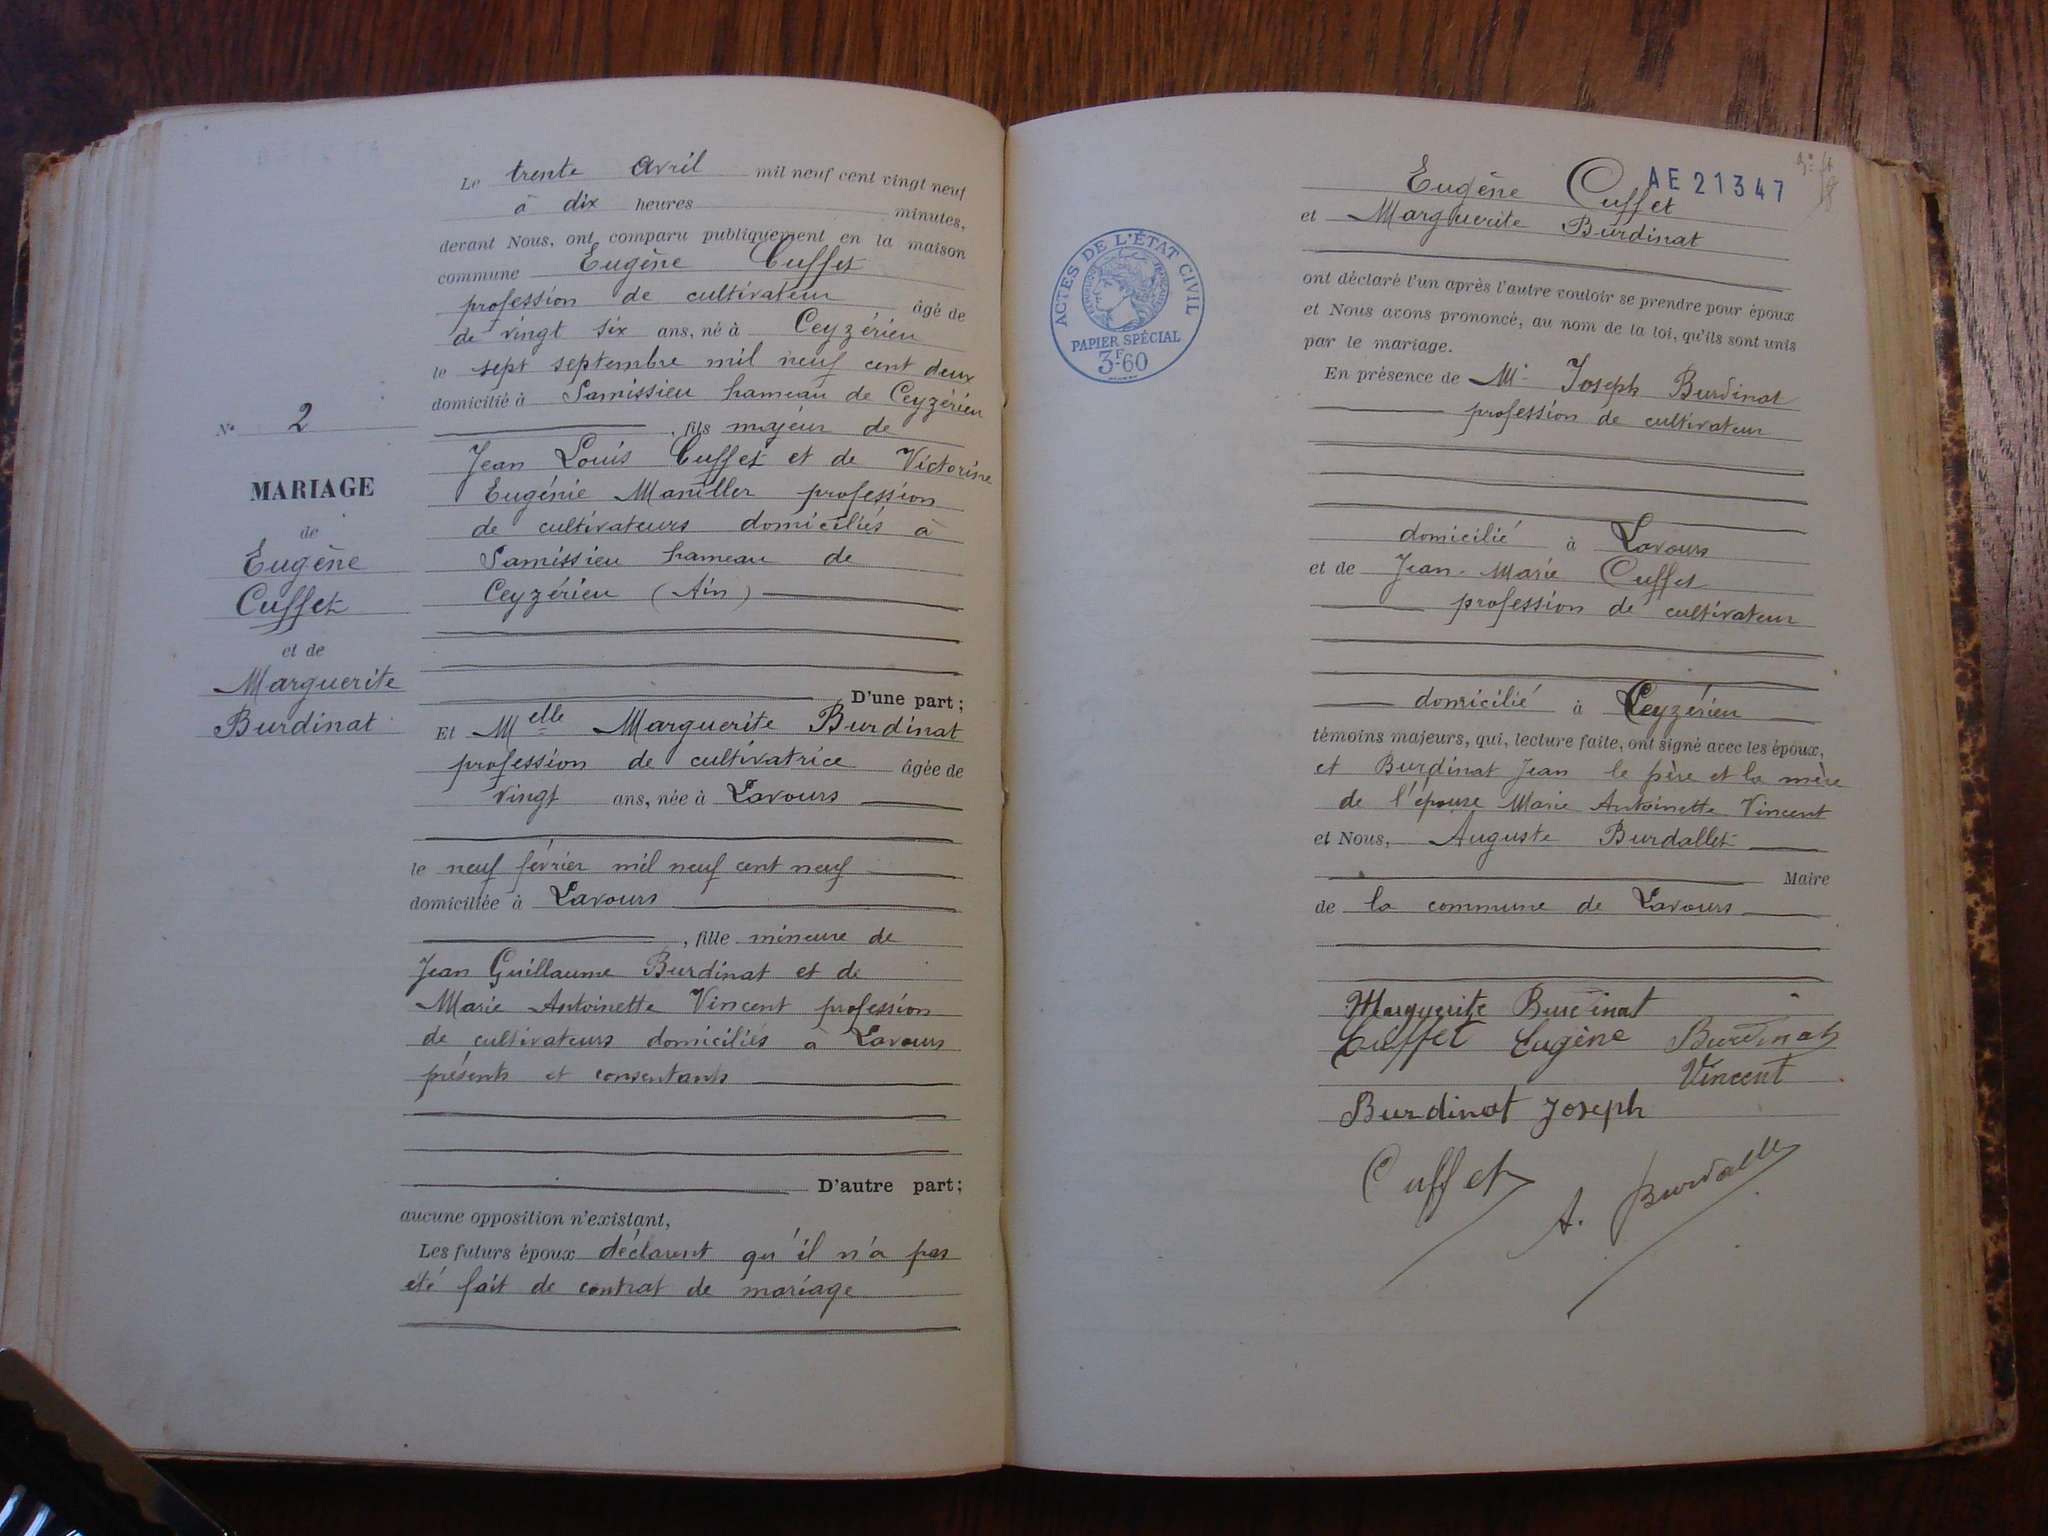 Le trente avril mil neuf cent vingt neuf
à dix heures minutes,
devant Nous, ont comparu publiquement en la maison
commune Eugène Cuffet
profession de cultivateur âgé de
de vingt six ans, né à Ceyzérieu
le sept septembre mil neuf cent deux
domicilié à Samissieu hameau de Ceyzérieu
, fils majeur de
Jean Louis Cuffet et de Victorine
Eugénie Maniller profession
de cultivateurs domiciliés à
Samissieu hameau de
Ceyzérieu (Ain)
D'une part;
Et Melle Marguerite Burdinat
profession de cultivatrice âgée de
vingt ans, née à Lavours
le neuf février mil neuf cent neuf
domiciliée à Lavours
, fille mineure de
Jean Guillaume Burdinat et de
Marie Antoinette Vincent profession
de cultivateurs domiciliés à Lavours
présents et consentants
D'autre part;
aucune opposition n'existant,
Les futurs époux déclarent qu'il n'a pas
été fait de contrat de mariage
N° 2
MARIAGE
de
Eugène
Cuffet
et de
Marguerite
Burdinat
AE 21347
ACTES DE L'ÉTAT CIVIL
PAPIER SPÉCIAL
3F.60
Eugène Cuffet
et Marguerite Burdinat
ont déclaré l'un après l'autre vouloir se prendre pour époux
et Nous avons prononcé, au nom de la loi, qu'ils sont unis
par le mariage.
En présence de Mr Joseph Burdinat
profession de cultivateur
domicilié à Lavours
et de Jean-Marie Cuffet
profession de cultivateur
domicilié à Ceyzérieu
témoins majeurs, qui, lecture faite, ont signé avec les époux,
et Burdinat Jean le père et la mère
de l'épouse Marie Antoinette Vincent
et Nous, Auguste Burdallet
Maire
de la commune de Lavours
Marguerite Burdinat
Cuffet Eugène Burdinat
Vincent
Burdinat Joseph
Cuffet
A. Burdallet